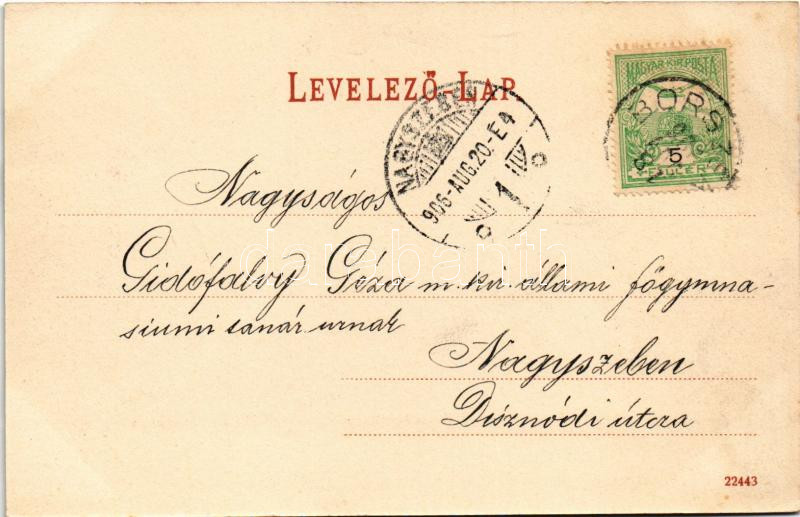 LEVELEZŐ-LAP.
MAGYAR KIR. POSTA
5
FILLÉR
BORSZ
NAGYSZEBEN
906-AUG.20.-E4
1
Nagyságos
Gidófalvy Géza m. kir. állami főgymna-
siumi tanár urnak
Nagyszeben
Disznódi útcza
darabanth
22443